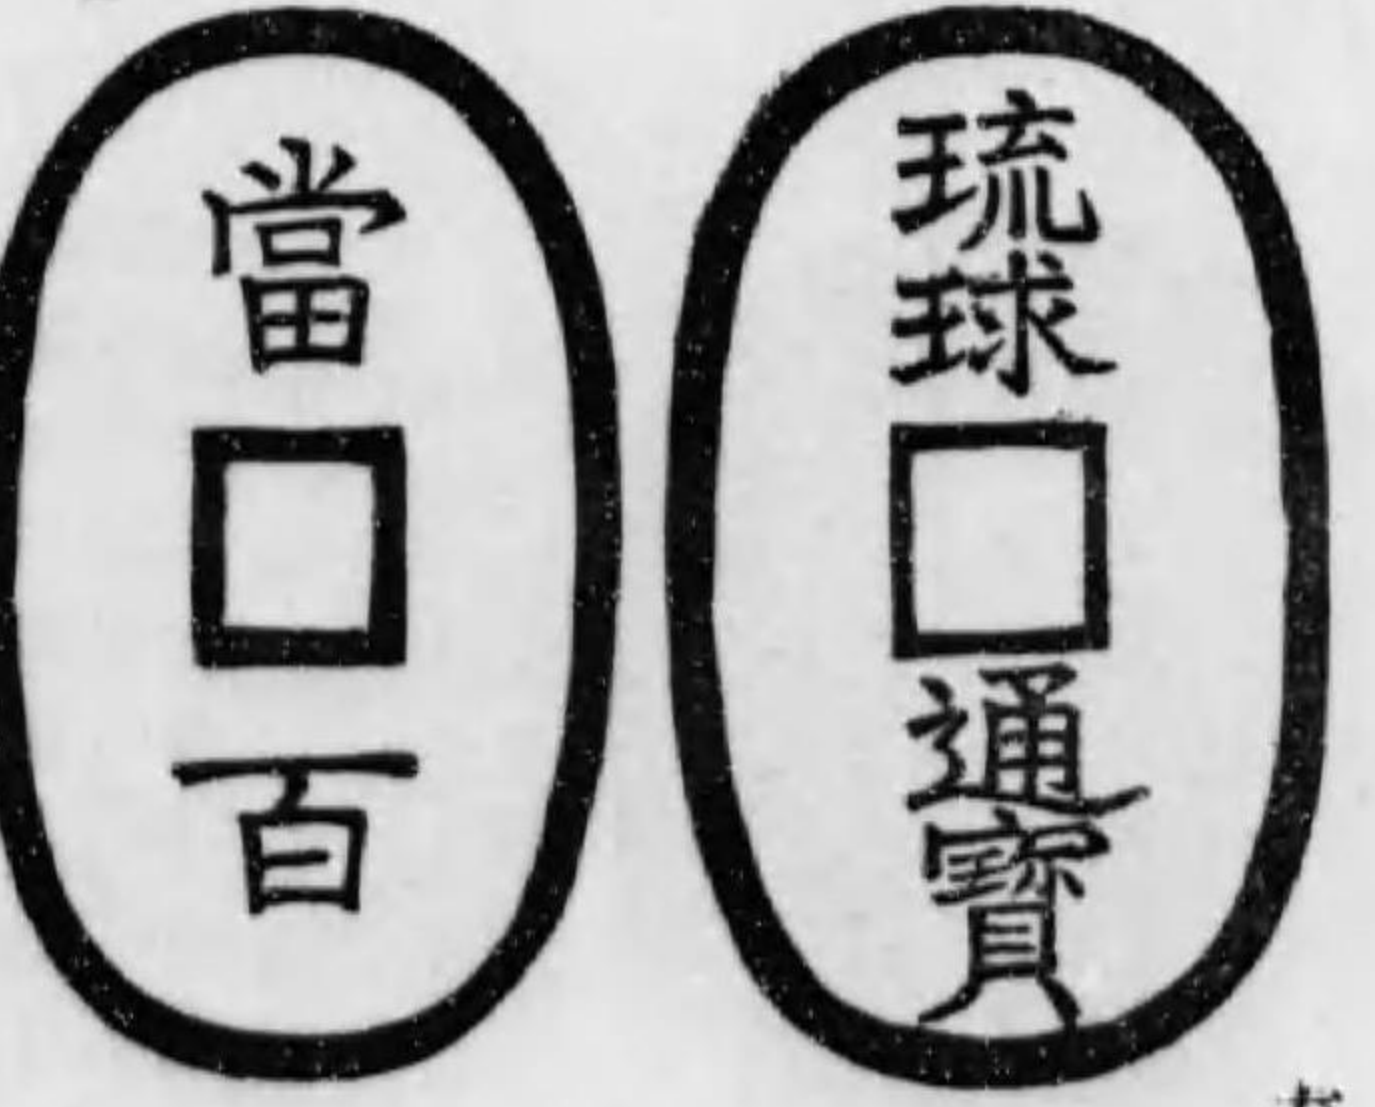 琉球通寳
當百